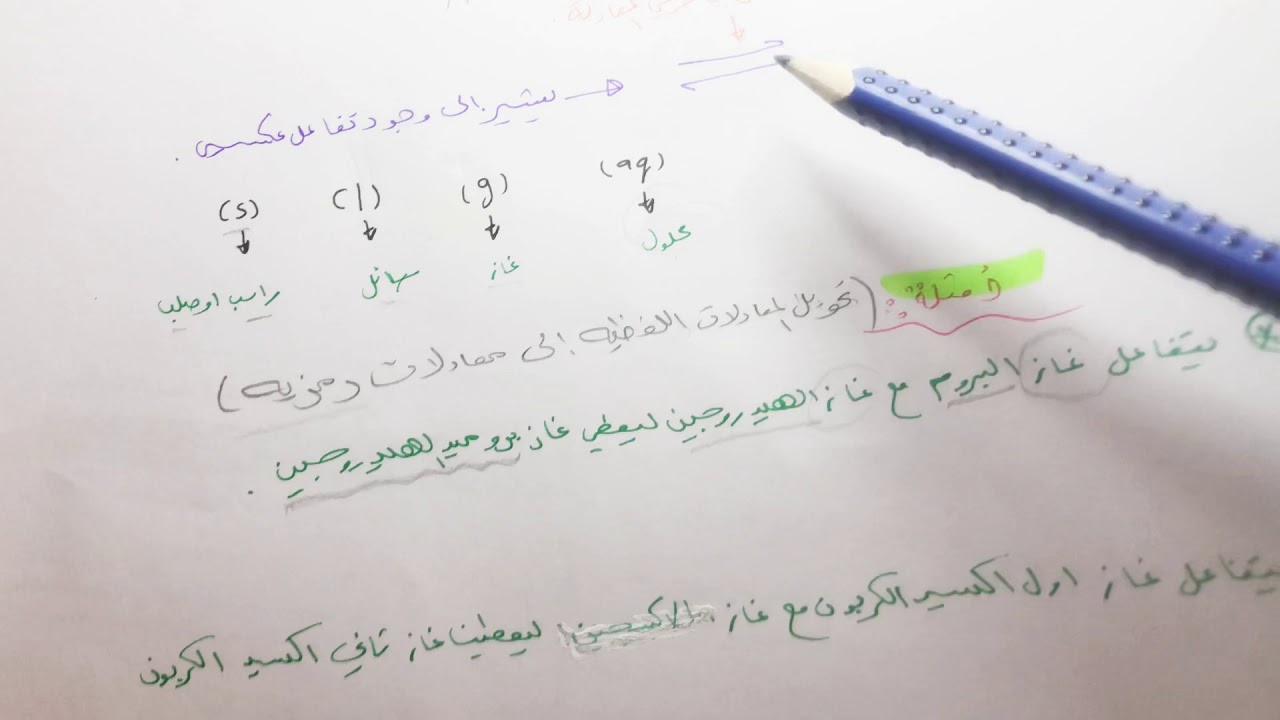 يشير الى وجود تفاعل عكسي .
(s) (l) (g) (aq)
راسب او صلب سائل غاز محلول
أمثلة: (تحويل المعادلات اللفظيه الى معادلات رمزيه)
يتفاعل غاز البروم مع غاز الهيدروجين ليعطي غاز بروميد الهيدروجين .
يتفاعل غاز اول اكسيد الكربون مع غاز الاكسجين ليعطينا غاز ثاني اكسيد الكربون